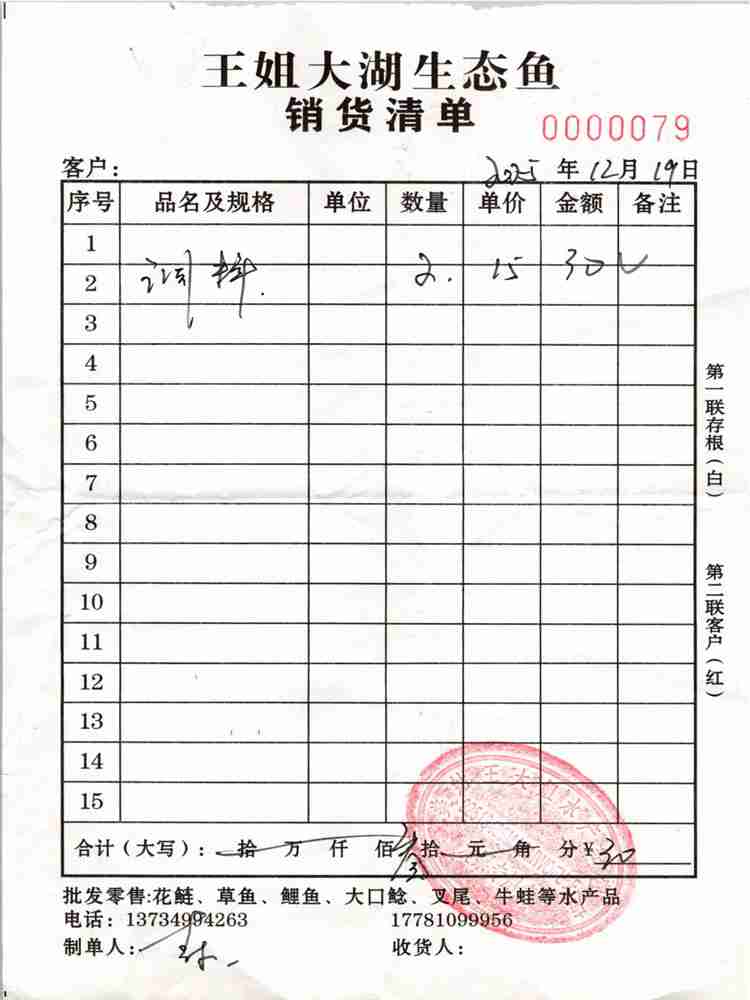 王姐大湖生态鱼
销货清单
0000079
客户： 2025 年 12 月 19 日
序号 品名及规格 单位 数量 单价 金额 备注
1
2 调料. 2. 15 30
3
4
5
6
7
8
9
10
11
12
13
14
15
合计（大写）： 拾 万 仟 佰 叁 拾 元 角 分 ¥ 30
批发零售:花鲢、草鱼、鲤鱼、大口鲶、叉尾、牛蛙等水产品
电话：13734994263 17781099956
制单人： 收货人：
第一联存根（白）
第二联客户（红）